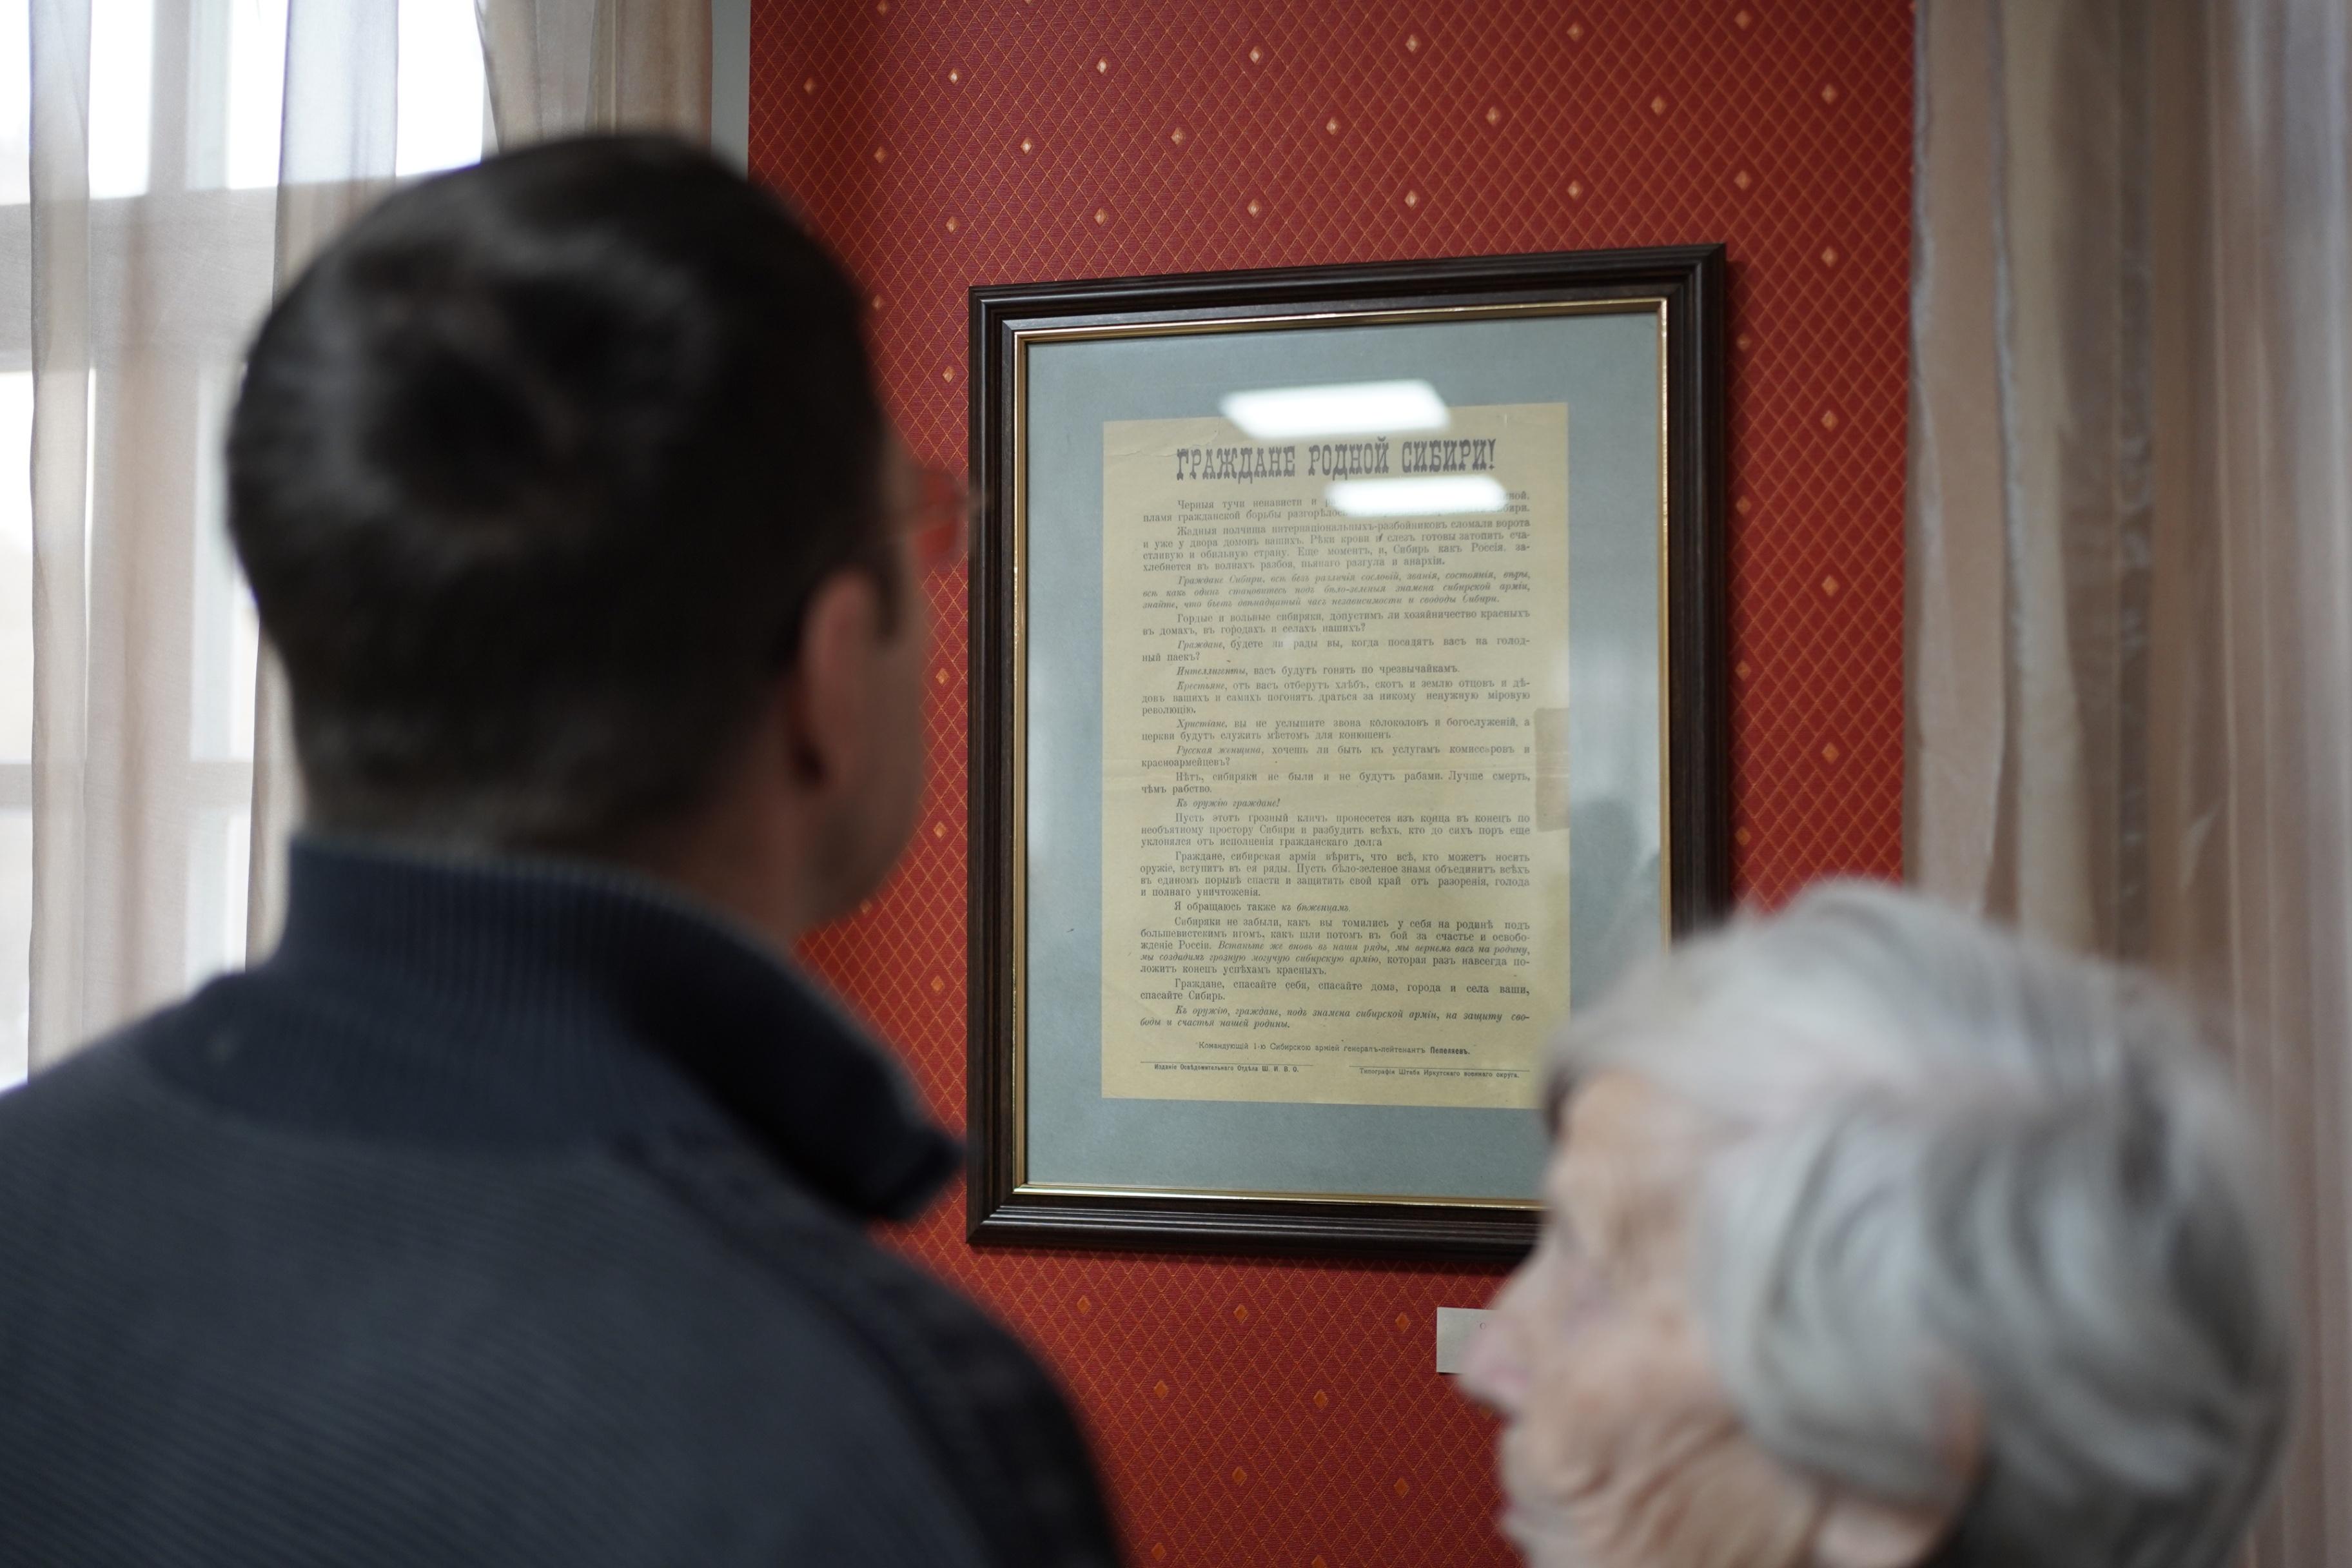 ГРАЖДАНЕ РОДНОЙ СИБИРИ!
Черныя тучи ненависти и
пламя гражданской борьбы
Жадныя полчища интернаціональныхъ-разбойниковъ сломали ворота
и уже у двора домовъ вашихъ. Рѣки крови и слезъ готовы затопить сча-
стливую и обильную страну. Еще моментъ, и, Сибирь какъ Россія, за-
хлебнется въ волнахъ разбоя, пьянаго разгула и анархіи.
Граждане Сибири, всѣ безъ различія сословій, званія, состоянія, вѣры,
всѣ какъ одинъ становитесь подъ бѣло-зеленыя знамена сибирской арміи,
знайте, что бьетъ двѣнадцатый часъ независимости и свободы Сибири.
Гордые и вольные сибиряки, допустимъ ли хозяйничество красныхъ
въ домахъ, въ городахъ и селахъ нашихъ?
Граждане, будете ли рады вы, когда посадятъ васъ на голод-
ный паекъ?
Интеллигенты, васъ будутъ гонять по чрезвычайкамъ.
Крестьяне, отъ васъ отберутъ хлѣбъ, скотъ и землю отцовъ и дѣ-
довъ вашихъ и самихъ погонятъ драться за никому ненужную міровую
революцію.
Христіане, вы не услышите звона колоколовъ и богослуженій, а
церкви будутъ служить мѣстомъ для конюшенъ
Русская женщина, хочешь ли быть къ услугамъ комиссаровъ и
красноармейцевъ?
Нѣтъ, сибиряки не были и не будутъ рабами. Лучше смерть,
чѣмъ рабство.
Къ оружію граждане!
Пусть этотъ грозный кличъ пронесется изъ конца въ конецъ по
необъятному простору Сибири и разбудитъ всѣхъ, кто до сихъ поръ еще
уклонялся отъ исполненія гражданскаго долга
Граждане, сибирская армія вѣритъ, что всѣ, кто можетъ носить
оружіе, вступитъ въ ея ряды. Пусть бѣло-зеленое знамя объединитъ всѣхъ
въ единомъ порывѣ спасти и защитить свой край отъ разоренія, голода
и полнаго уничтоженія.
Я обращаюсь также къ бѣженцамъ.
Сибиряки не забыли, какъ вы томились у себя на родинѣ подъ
большевистскимъ игомъ, какъ шли потомъ въ бой за счастье и освобо-
жденіе Россіи. Встаньте же вновь въ наши ряды, мы вернемъ васъ на родину,
мы создадимъ грозную могучую сибирскую армію, которая разъ навсегда по-
ложитъ конецъ успѣхамъ красныхъ.
Граждане, спасайте себя, спасайте дома, города и села ваши,
спасайте Сибирь.
Къ оружію, граждане, подъ знамена сибирской арміи, на защиту сво-
боды и счастья нашей родины.
Командующій 1-ю Сибирскою арміей генералъ-лейтенантъ Пепеляевъ.
Изданіе Освѣдомительнаго Отдѣла Ш. И. В. О.
Типографія Штаба Иркутскаго военнаго округа.